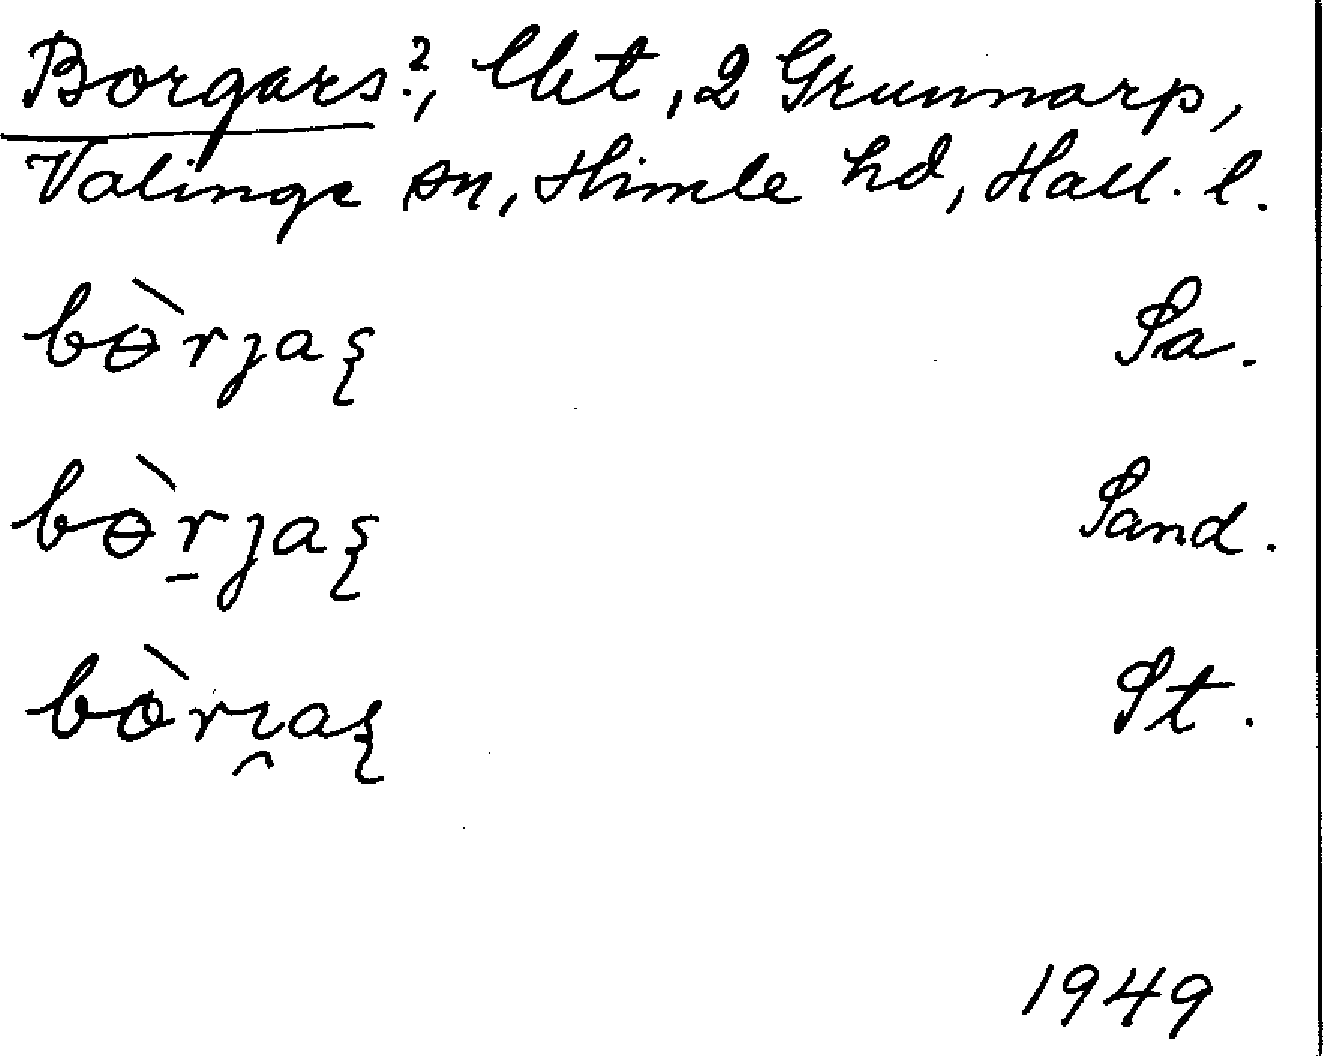 Borgars?, lht, 2 Grunnarp,
Valinge sn, Himle hd, Hall. l.
bɵ̀rȷas̨ Sa.
bɵ̀r̲ȷas̨ Sand.
bòrı̯as̨ St.
1949